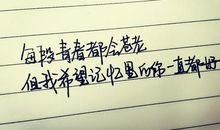 每段青春都会苍老
但我希望记忆里的你一直都好